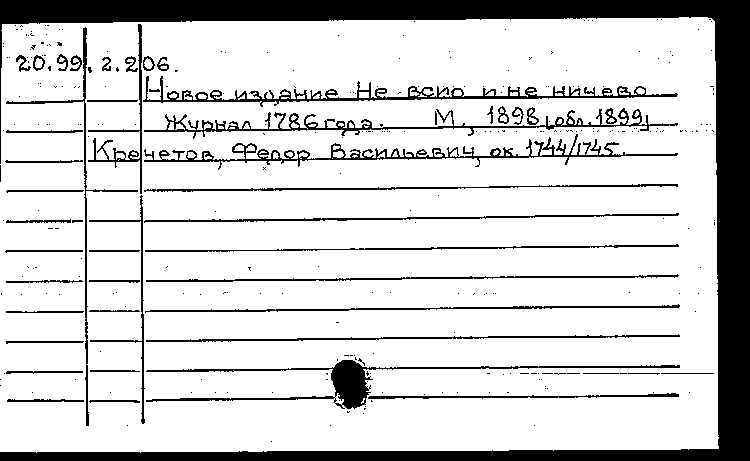 20.99.2.206.
Новое издание Не всио и не ничево
Журнал 1786 года. М., 1898 [обл. 1899]
Кречетов, Федор Васильевич, ок. 1744/1745.